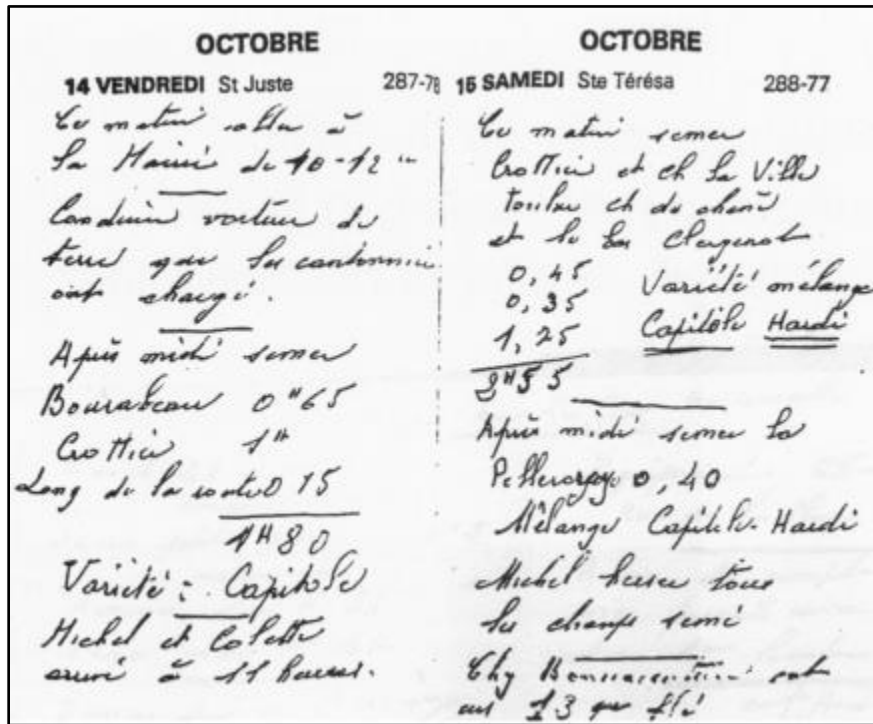 OCTOBRE
14 VENDREDI St Juste 287-78
Ce matin aller à
la Mairie de 10-12 h
Conduire voiture de
terre que les cantonnier
ont chargé.
Après midi semer
Bourabeau 0H65
Crottier 1H
Long de la route 0 15
1H80
Variété : Capitole
Michel et Colette
arrivé à 11 heures.
OCTOBRE
15 SAMEDI Ste Térésa 288-77
Ce matin semer
Crottier et ch la Ville
ch du
et le bas
0,45 Variété mélange
0,35 Capitole Hardi
1,25
2H55
Après midi semer la
0,40
Mélange Capitole-Hardi
Michel herser tous
les champs semé